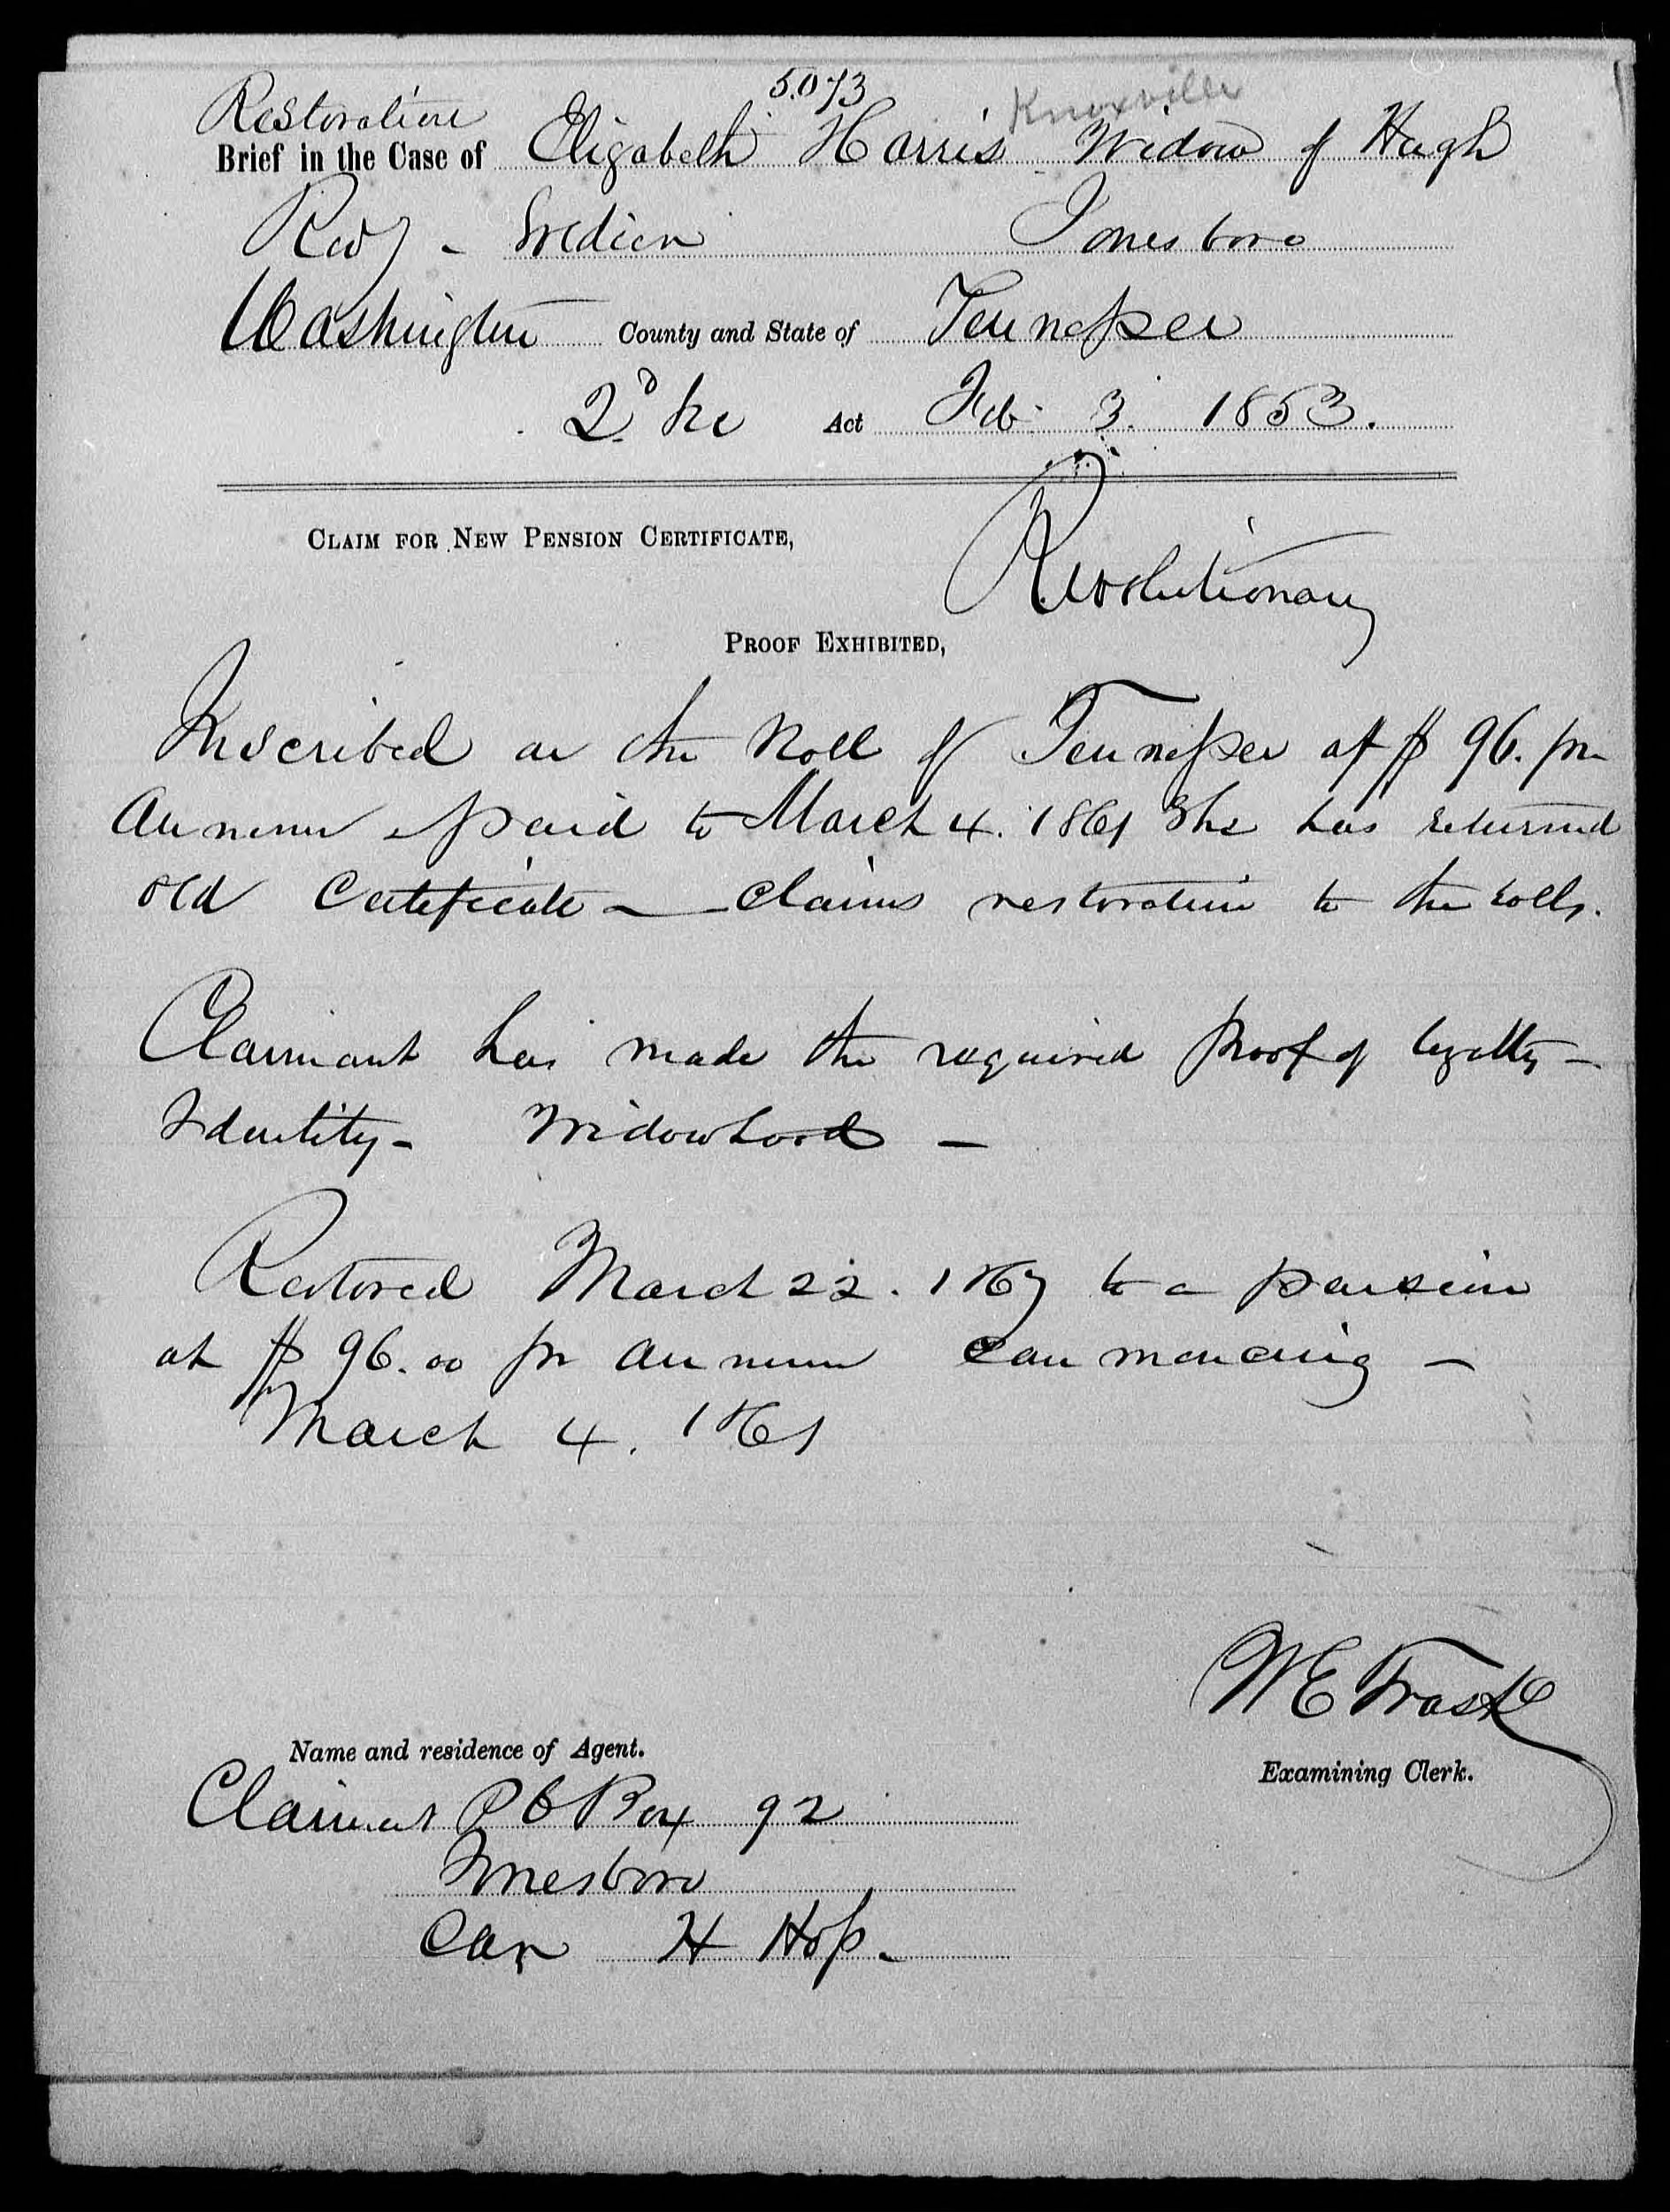 5.073
Knoxville
Restoration
Brief in the Case of Elizabeth Harris Widow of Hugh
Revy - Indian Jonesboro
Washington County and State of Tennessee
2d Act Feb 3. 1853.
CLAIM FOR NEW PENSION CERTIFICATE,
Revolutionary
PROOF EXHIBITED,
Inscribed on the Roll of Tennessee at $ 96. pr
Annum & paid to March 4. 1861 She has returned
old Certificate - claims restoration to the rolls.
Claimant has made the required proof of loyalty -
Identity - Widowhood -
Restored March 22. 1867 to a pension
at $ 96.00 pr annum commencing -
March 4. 1861
W E Trask
Examining Clerk.
Name and residence of Agent.
Claimant P O Box 92
Jonesboro
Care H Hoss